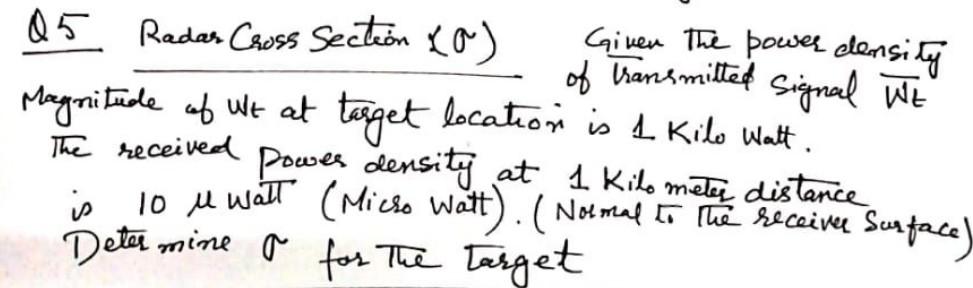 Q5 Radar Cross Section (σ) Given The power density
of transmitted signal Wt
Magnitude of Wt at target location is 1 Kilo Watt.
The received power density at 1 Kilo meter distance
is 10 μ Watt (Micro Watt). (Normal to The receiver Surface)
Determine σ for The Target